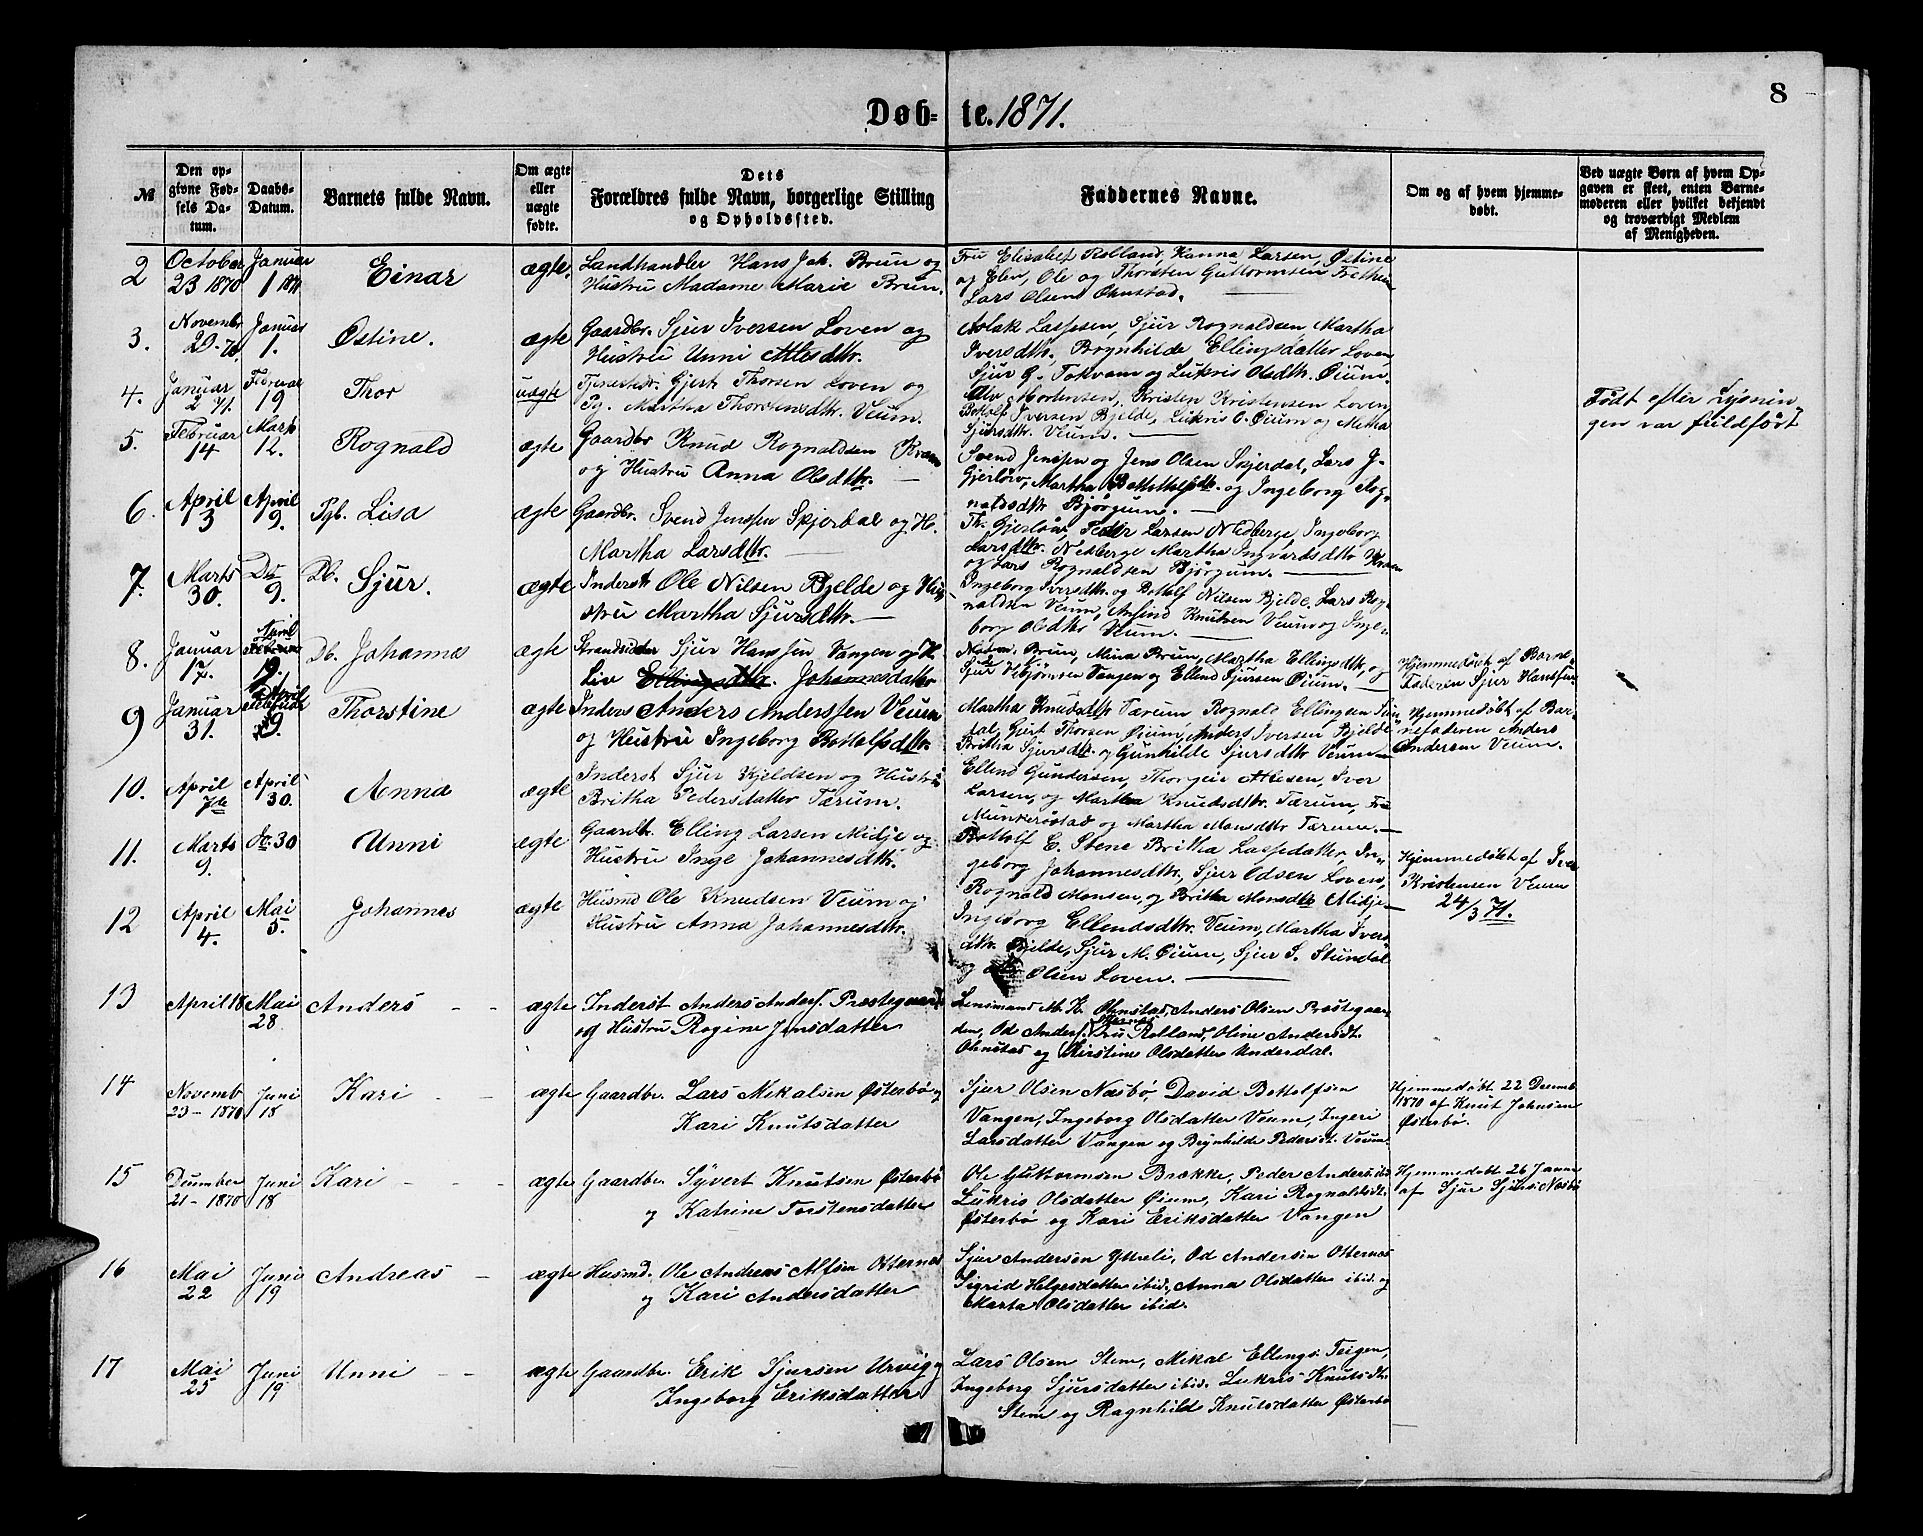 8
Døb- te. 1871.
№
Den op-
givne Fød-
sels Da-
tum.
Daabs-
Datum.
Barnets fulde Navn.
Om ægte
eller
uægte
fødte.
Dets
Forældres fulde Navn, borgerlige Stilling
og Opholdssted.
Faddernes Navne.
Om og af hvem hjemme-
døbt.
Ved uægte Børn af hvem Op-
gaven er skeet, enten Barne-
moderen eller hvilket bekjendt
og troværdigt Medlem
af Menigheden.
2
October
23 1870
Januar
1 1871
Einar
ægte.
Landhandler Hans Joh. Brun og
Hustru Madame Marie Brun.
Fru Elisabet Rolland, Hanna Larsen, Østine
og Elen, Ole og Thorsten Guttormsen Fretheim
Lars Olsen Ohnstad.
3.
Novembr
29-70
Januar
1.
Østine.
ægte
Gaardbr. Sjur Iversen Loven og
Hustru Unni Atlesdtr.
Aslak Lassesen, Sjur Rognaldsen, Martha
Iversdtr., Brynhilde Ellingsdatter Loven
Sjur G. Tokvam og Lukris Olsdtr. Øium.
4.
Januar
2 71.
Februar
19
Thor
uægte
Tjenestedr. Gjert Thorsen Loven og
Pg. Martha Thorstensdtr. Veum.
Mortensen, Kristen Kristensen Loven,
Bottolf Iversen Bjelde, Lukris O. Øium og Metha
Sjursdtr. Veum.
Født efter Lysnin
gen var fuldført
5.
Februar
14
Marts
12.
Rognald
ægte
Gaardbr Knud Rognaldsen Kvam
og Hustru Anna Olsdtr.
Svend Jenssen og Jens Olsen Skjerdal, Lars J.
Gjerløw, Martha Bottolfsdtr. og Ingeborg Rog-
naldsdtr Bjørgum.
6.
April
3
April
9.
Pgb. Lisa
ægte
Gaardbr. Svend Jenssen Skjerdal og H.
Martha Larsdtr.
Th. Gjerløw, Peder Larsen Nedberge, Ingeborg
Larsdtr. Nedberge Martha Ingvardsdtr Kvam
og Lars Rognaldsen Bjørgum.
7.
Marts
30.
Do
9.
Db. Sjur.
ægte
Inderst Ole Nilsen Bjelde og Hu-
stru Martha Sjursdtr.
Ingeborg Iversdtr. og Bottolf Nilsen Bjelde, Lars Rog-
naldsen Veum, Amund Knutsen Veum og Inge-
borg Olsdtr Veum.
8.
Januar
17.
April
9.
Db. Johannes
ægte
Strandsidder Sjur Hanssen Vangen og H.
Liv Ellingsdtr. Johannesdatter
Brun, Mina Brun, Martha Ellingsdtr, og
Sjur Vibjørnsen Vangen og Ellend Sjursen Øium.
Hjemmedøbt af Barne-
Faderen Sjur Hanssen
9
Januar
31.
April
9.
Thorstine
ægte
Inders Anders Anderssen Veum
og Hustru Ingeborg Bottolfsdtr.
Martha Knudsdtr Tærum, Rognald Ellingsen
Gjert Thorsen Øium, Anders Iversen Bjelde
Britha Sjursdtr. og Gunhilde Sjursdtr Veum
Hjemmedøbt af Bar-
nefaderen Anders
Andersen Veum.
10.
April
7de
April
30.
Anna
ægte
Inderst Sjur Kjeldsen og Hustru
Britha Pedersdatter Tærum.
Ellend Gundersen, Thorgeir Atlesen, Iver
Larsen, og Martha Knudsdtr. Tærum, Fru
Munkerøstad og Martha Monsdtr Tærum.
11.
Marts
9.
Do. 30
Unni
ægte
Gaardbr. Elling Larsen Midje og
Hustru Inge Johannesdtr.
Bottolf E. Stene Britha Lassedatter, In-
geborg Johannesdtr., Sjur Odsen Loven,
Rognald Monsen, og Britha Monsdtr Midje
Hjemmedøbt af Iver
Kristensen Veum
24/3 71.
12
April
4.
Mai
5.
Johannes
ægte
Husmd Ole Knudsen Veum og
Hustru Anna Johannesdtr.
Ingeborg Ellendsdtr. Veum, Martha Ivers
dtr. Bjelde, Sjur M. Øium, Sjur S. Stundal
og Olsen Loven.
13
April 18
Mai
28
Anders
ægte
Inderst Anders Anders. Prestegaard
og Hustru Rogine Jensdatter
Lensmand M. K. Ohnstad, Anders Olsen Prestegaar
den, Od Anders. Fru Rolland, Oline Andersdt.
Ohnstad og Kirstine Olsdatter Underdal.
14
Novemb
23-1870
Juni
18
Kari
ægte
Gaardbr. Lars Mikalsen Østerbø og
Kari Knutsdatter
Sjur Olsen Næsbø David Bottolfsen
Vangen, Ingeborg Olsdatter Veum, Ingeri
Larsdatter Vangen og Brynhilde Pedersdt. Veum.
Hjemmedøbt 22 Decemb
1870 af Knut Johnsen
Østerbø.
15
December
21-1870
Juni
18
Kari
ægte
Gaardbr. Syvert Knutsen Østerbø
og Katrine Torstensdatter
Ole Guttormsen Brække, Peder Anders. ibid
Lukris Olsdatter Øium, Kari Rognaldsdt.
Østerbø og Kari Eriksdatter Vangen
Hjemmedøbt 26 Januar
af Sjur Sjurs. Næsbø
16
Mai
22
Juni
19
Andreas
ægte
Husmd. Ole Andreas Alfsen Otternes
og Kari Andersdatter
Sjur Andersen Ytreli, Od Andersen Otternes
Sigrid Helgesdatter ibid., Anna Olsdatter ibid. og
Marta Olsdatter ibid.
17
Mai
25
Juni
19
Unni
ægte
Gaardbr. Erik Sjursen Urvig og
Ingeborg Eriksdatter
Lars Olsen Stem, Mikal Ellings. Teigen,
Ingeborg Sjursdatter ibid. Lukris Knutsdt.
Stem og Ragnhild Knutsdatter Østerbø